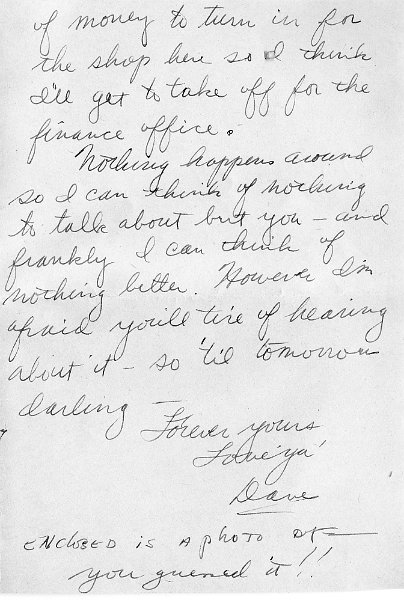 of money to turn in for
the shop here so I think
I'll get to take off for the
finance office.
Nothing happens around
so I can think of nothing
to talk about but you - and
frankly I can think of
nothing better. However I'm
afraid you'll tire of hearing
about it - so 'til tomorrow
darling -
Forever yours
Love'ya'
Dave
ENCLOSED IS A PHOTO OF -
you guessed it!!